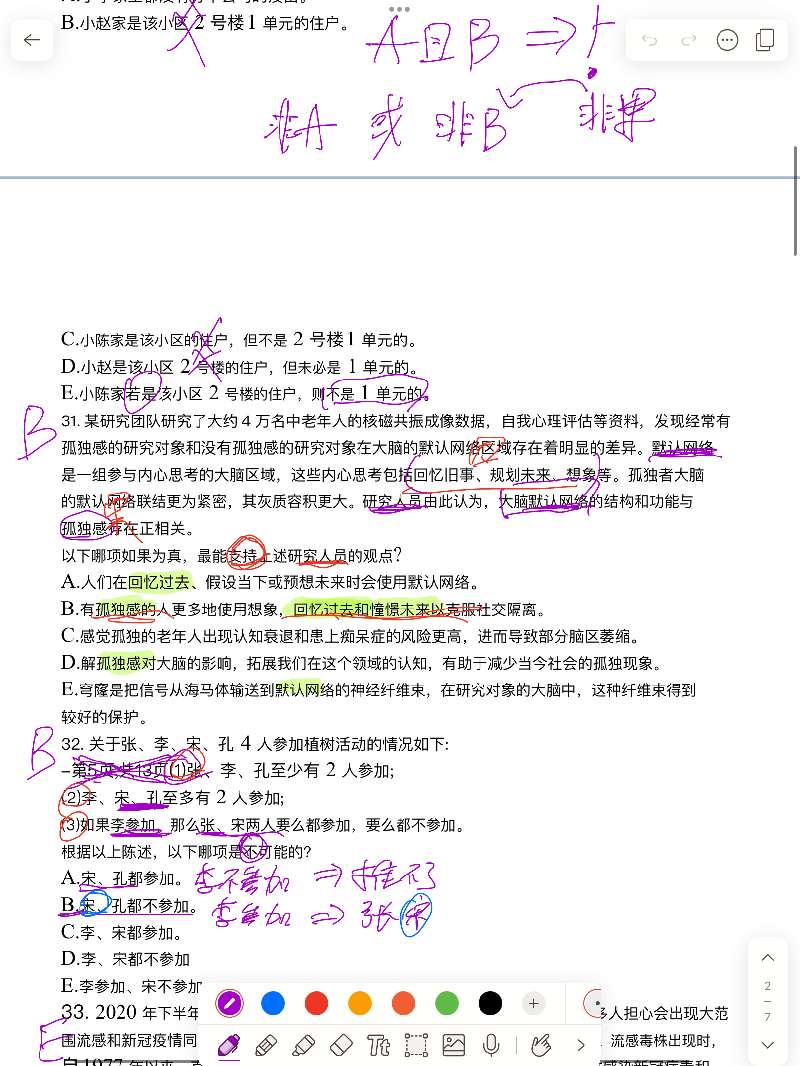 B.小赵家是该小区 2 号楼 1 单元的住户。
A且B ⇒
非A 或 非B 非果
C.小陈家是该小区的住户，但不是 2 号楼 1 单元的。
D.小赵是该小区 2 号楼的住户，但未必是 1 单元的。
E.小陈家若是该小区 2 号楼的住户，则不是 1 单元的。
B
31. 某研究团队研究了大约 4 万名中老年人的核磁共振成像数据，自我心理评估等资料，发现经常有
孤独感的研究对象和没有孤独感的研究对象在大脑的默认网络区域存在着明显的差异。默认网络
是一组参与内心思考的大脑区域，这些内心思考包括回忆旧事、规划未来、想象等。孤独者大脑
的默认网络联结更为紧密，其灰质容积更大。研究人员由此认为，大脑默认网络的结构和功能与
孤独感存在正相关。
以下哪项如果为真，最能支持上述研究人员的观点?
A.人们在回忆过去、假设当下或预想未来时会使用默认网络。
B.有孤独感的人更多地使用想象，回忆过去和憧憬未来以克服社交隔离。
C.感觉孤独的老年人出现认知衰退和患上痴呆症的风险更高，进而导致部分脑区萎缩。
D.解孤独感对大脑的影响，拓展我们在这个领域的认知，有助于减少当今社会的孤独现象。
E.穹窿是把信号从海马体输送到默认网络的神经纤维束，在研究对象的大脑中，这种纤维束得到
较好的保护。
B
32. 关于张、李、宋、孔 4 人参加植树活动的情况如下:
–第5页,共13页(1)张、李、孔至少有 2 人参加;
(2)李、宋、孔至多有 2 人参加;
(3)如果李参加，那么张、宋两人要么都参加，要么都不参加。
根据以上陈述，以下哪项是不可能的?
A.宋、孔都参加。 李不参加 ⇒ 推不了
B.宋、孔都不参加。 李参加 ⇒ 张 宋
C.李、宋都参加。
D.李、宋都不参加
E.李参加、宋不参加
33. 2020 年下半年 多人担心会出现大范
E
围流感和新冠疫情同 流感毒株出现时，
自1977 年以来，
Tt
2
7